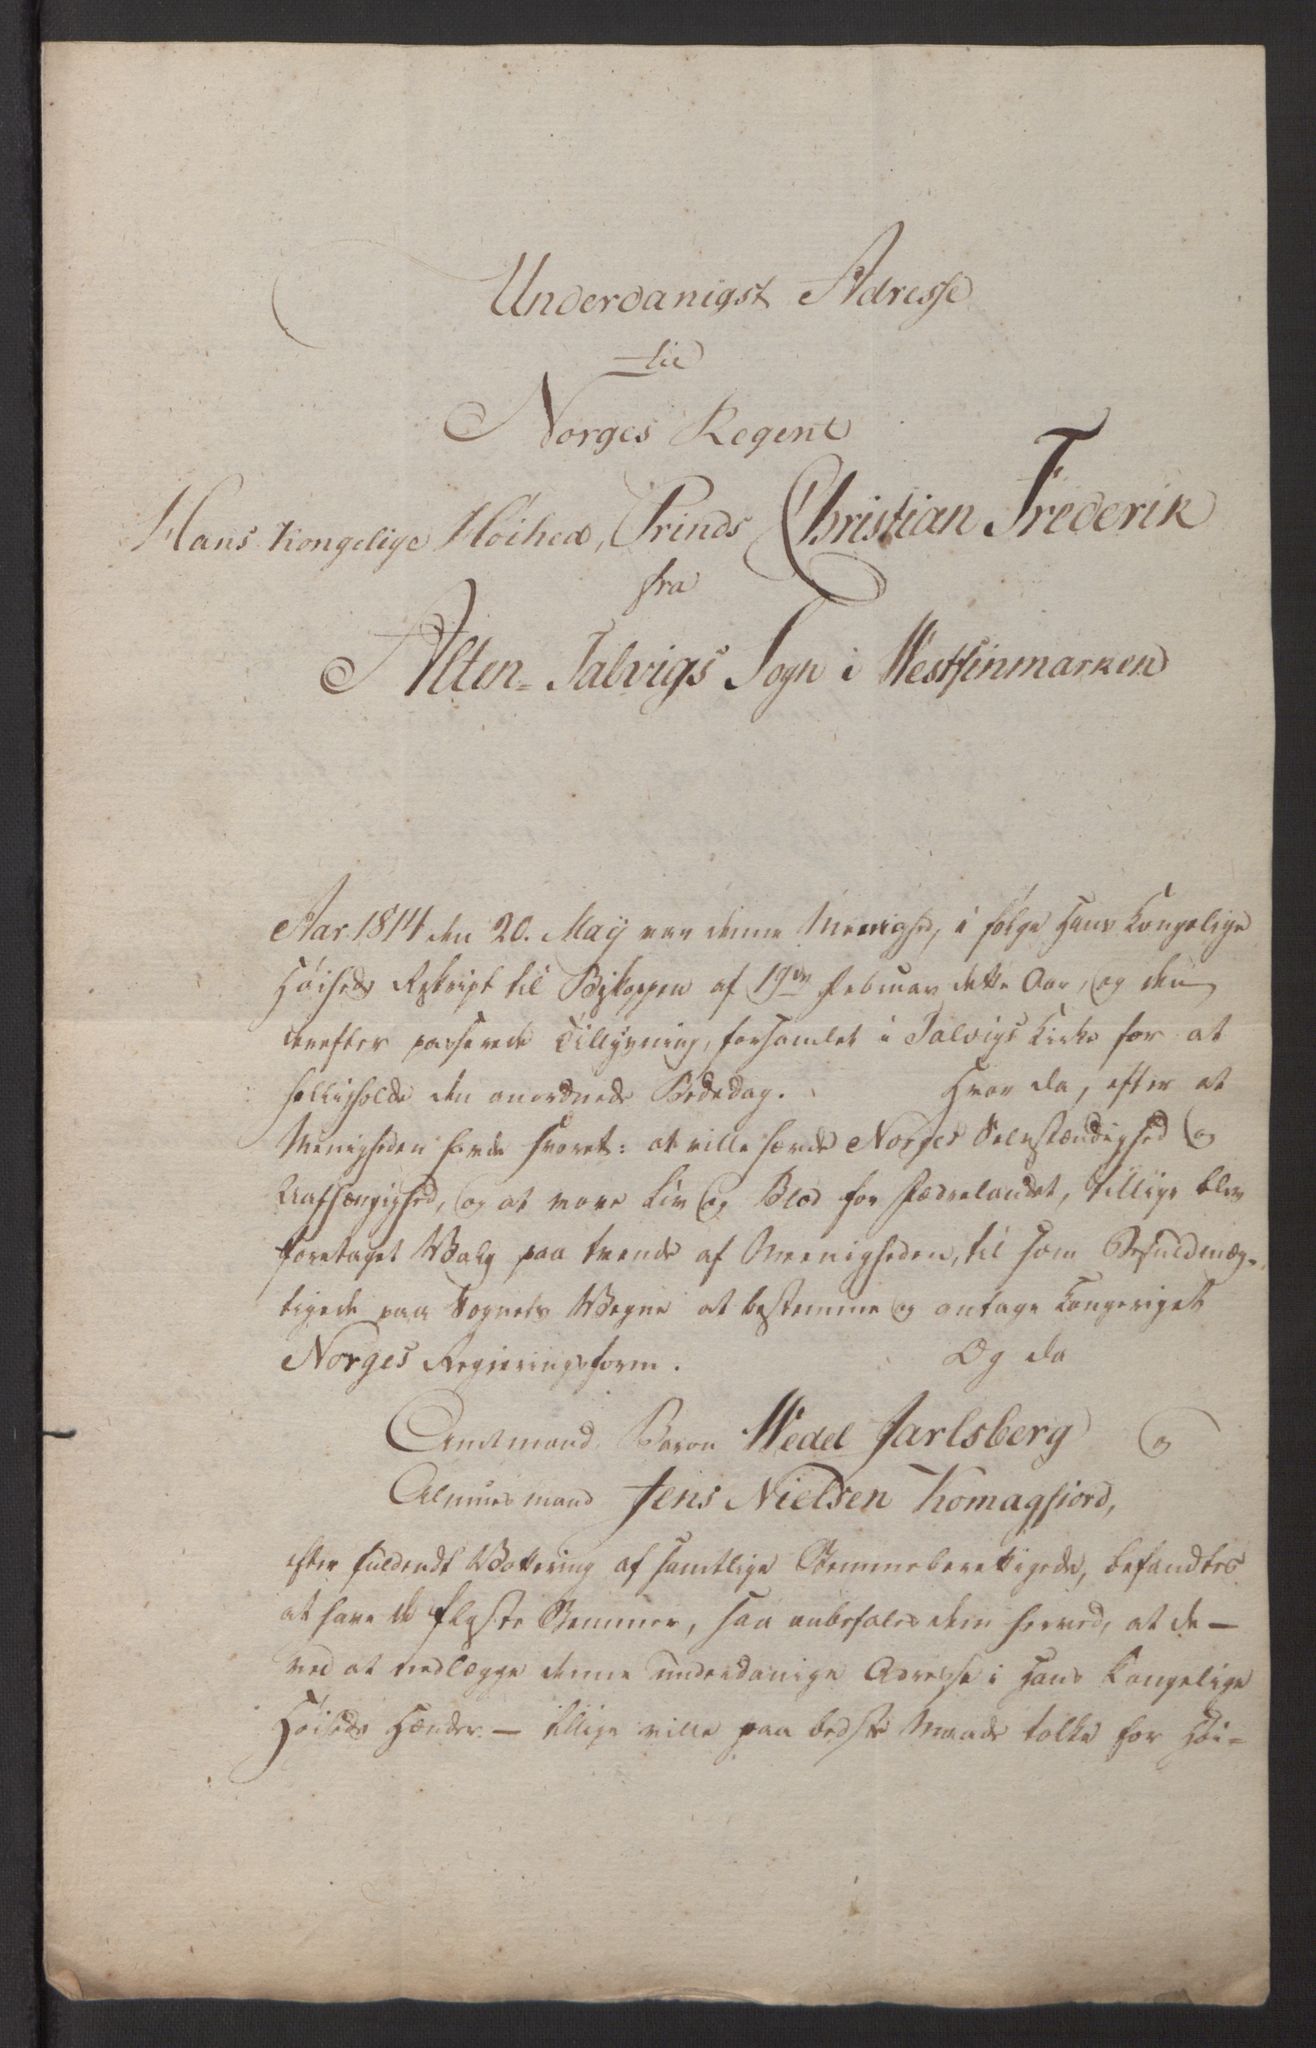 Underdanigst Adresse
til
Norges Regent
Hans Kongelige Høihed, Prinds Christian Frederik
fra
Alten-Talvigs Sogn i Westfinmarken
Aar 1814 den 20. May var denne Menighed, i følge Hans Kongelige
Høiheds Reskript til Biskoppen af 19de Februar dette Aar, og den
derefter passerede Tillysning, forsamlet i Talvigs Kirke for at
helligholde den anordnede Bededag. Hvor da, efter at
Menigheden havde svoret: at ville hævde Norges Selvstændighed og
Uafhængighed, og at vove Liv og Blod for Fædrelandet, tillige blev
foretaget Valg paa tvende af Menigheden, til som Befuldmæg-
tigede paa Sognets Vegne at bestemme og antage Kongeriget
Norges Regieringsform. Og da
Amtmand Baron Wedel Jarlsberg og
Almuesmand Jens Nielsen Komagfiord,
efter fuldendt Vottering af samtlige Stemmeberettigede, befandtes
at have de fleste Stemmer, saa anbefales dem herved, at de —
ved at nedlægge denne underdanige Adresse i Hans Kongelige
Høiheds Hænder — tillige ville paa bedste Maade tolke for Høi-